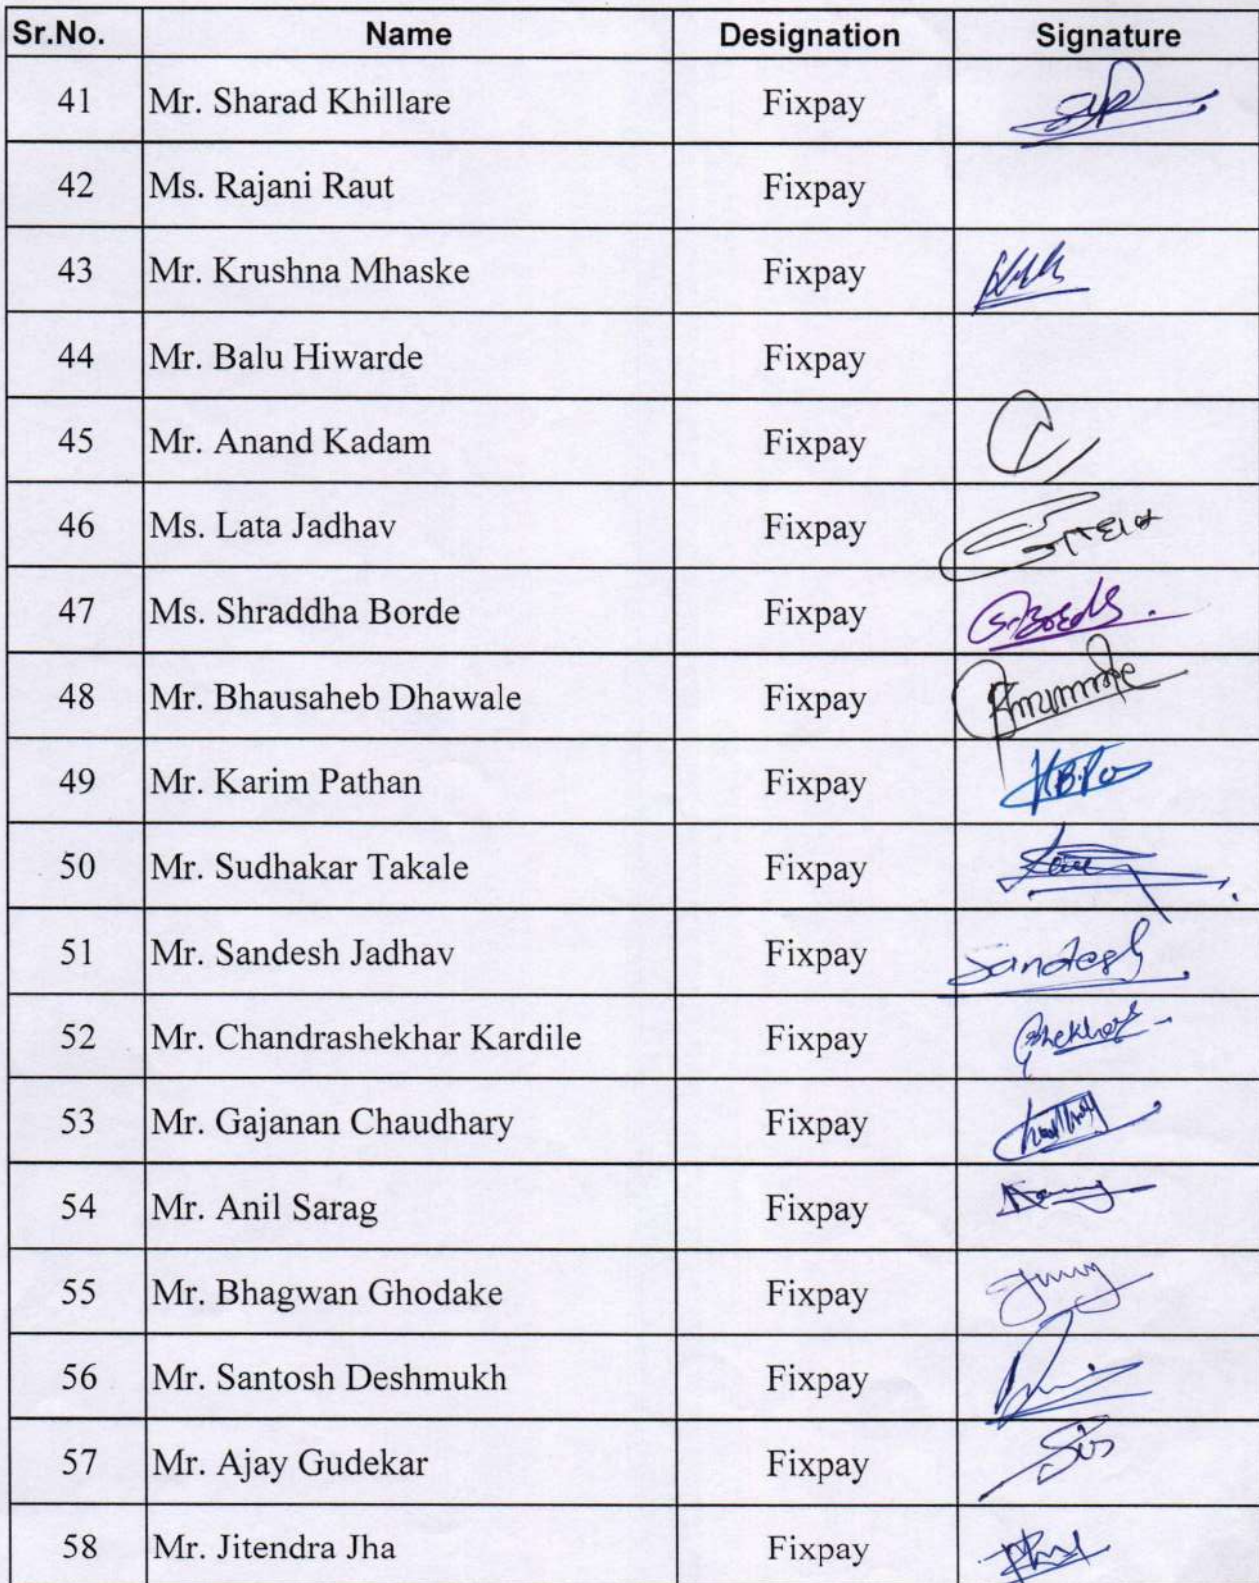 Sr.No. Name Designation Signature
41 Mr. Sharad Khillare Fixpay
42 Ms. Rajani Raut Fixpay
43 Mr. Krushna Mhaske Fixpay
44 Mr. Balu Hiwarde Fixpay
45 Mr. Anand Kadam Fixpay
46 Ms. Lata Jadhav Fixpay
47 Ms. Shraddha Borde Fixpay
48 Mr. Bhausaheb Dhawale Fixpay
49 Mr. Karim Pathan Fixpay
50 Mr. Sudhakar Takale Fixpay
51 Mr. Sandesh Jadhav Fixpay Sandesh
52 Mr. Chandrashekhar Kardile Fixpay
53 Mr. Gajanan Chaudhary Fixpay
54 Mr. Anil Sarag Fixpay
55 Mr. Bhagwan Ghodake Fixpay
56 Mr. Santosh Deshmukh Fixpay
57 Mr. Ajay Gudekar Fixpay
58 Mr. Jitendra Jha Fixpay